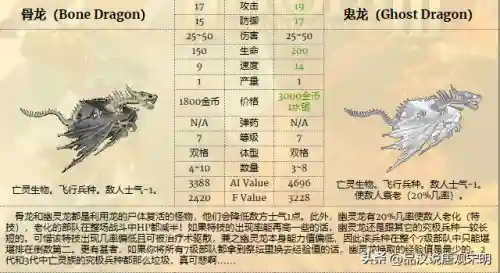 骨龙 (Bone Dragon)
17 攻击 19
鬼龙 (Ghost Dragon)
15 防御 17
25~50 伤害 25~50
150 生命 200
9 速度 14
1 产量 1
1800金币 价格 3000金币
1水银
N/A 弹药 N/A
7 等级 7
双格 体型 双格
4~10 数量 3~8
3388 AI Value 4696
2420 F Value 3228
亡灵生物。飞行兵种。敌人士气-1。
亡灵生物。飞行兵种。敌人士气-1。
使敌人衰老（20%几率）。
骨龙和幽灵龙都是利用龙的尸体复活的怪物，他们会降低敌方士气1点。此外，幽灵龙有20%几率使敌人老化（特
技），老化的部队在整场战斗中HP都减半！如果特技的出现率能再高一些的话，幽灵龙还是跟其它的究极兵种一较长
短的。可惜该特技出现几率偏低且可被治疗术驱散，兼之幽灵龙本身能力值偏低，因此该兵种在整个7级部队中只能堪
堪排在倒数第二。更有甚者，如果你将所有7级部队都拿到祭坛里换去经验值的话，幽灵龙换取的经验值是最少的。2
代和3代中亡灵族的究极兵种都那么垃圾，真可悲啊……
头条 @品败说盛观宋明